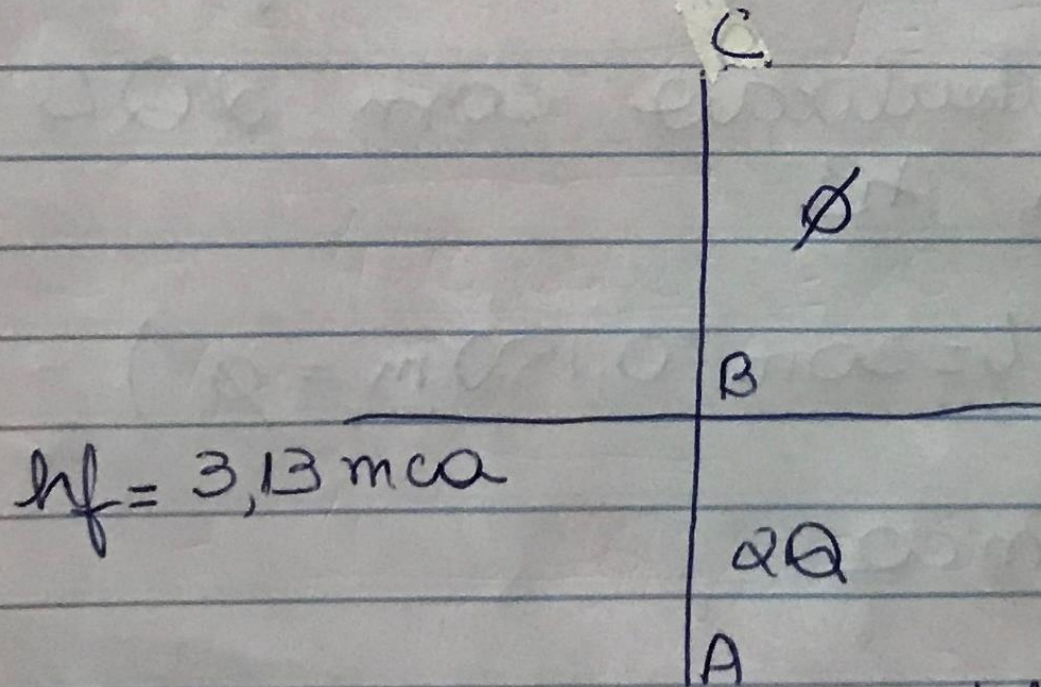 C
Ø
B
hf = 3,13 mca
2Q
A